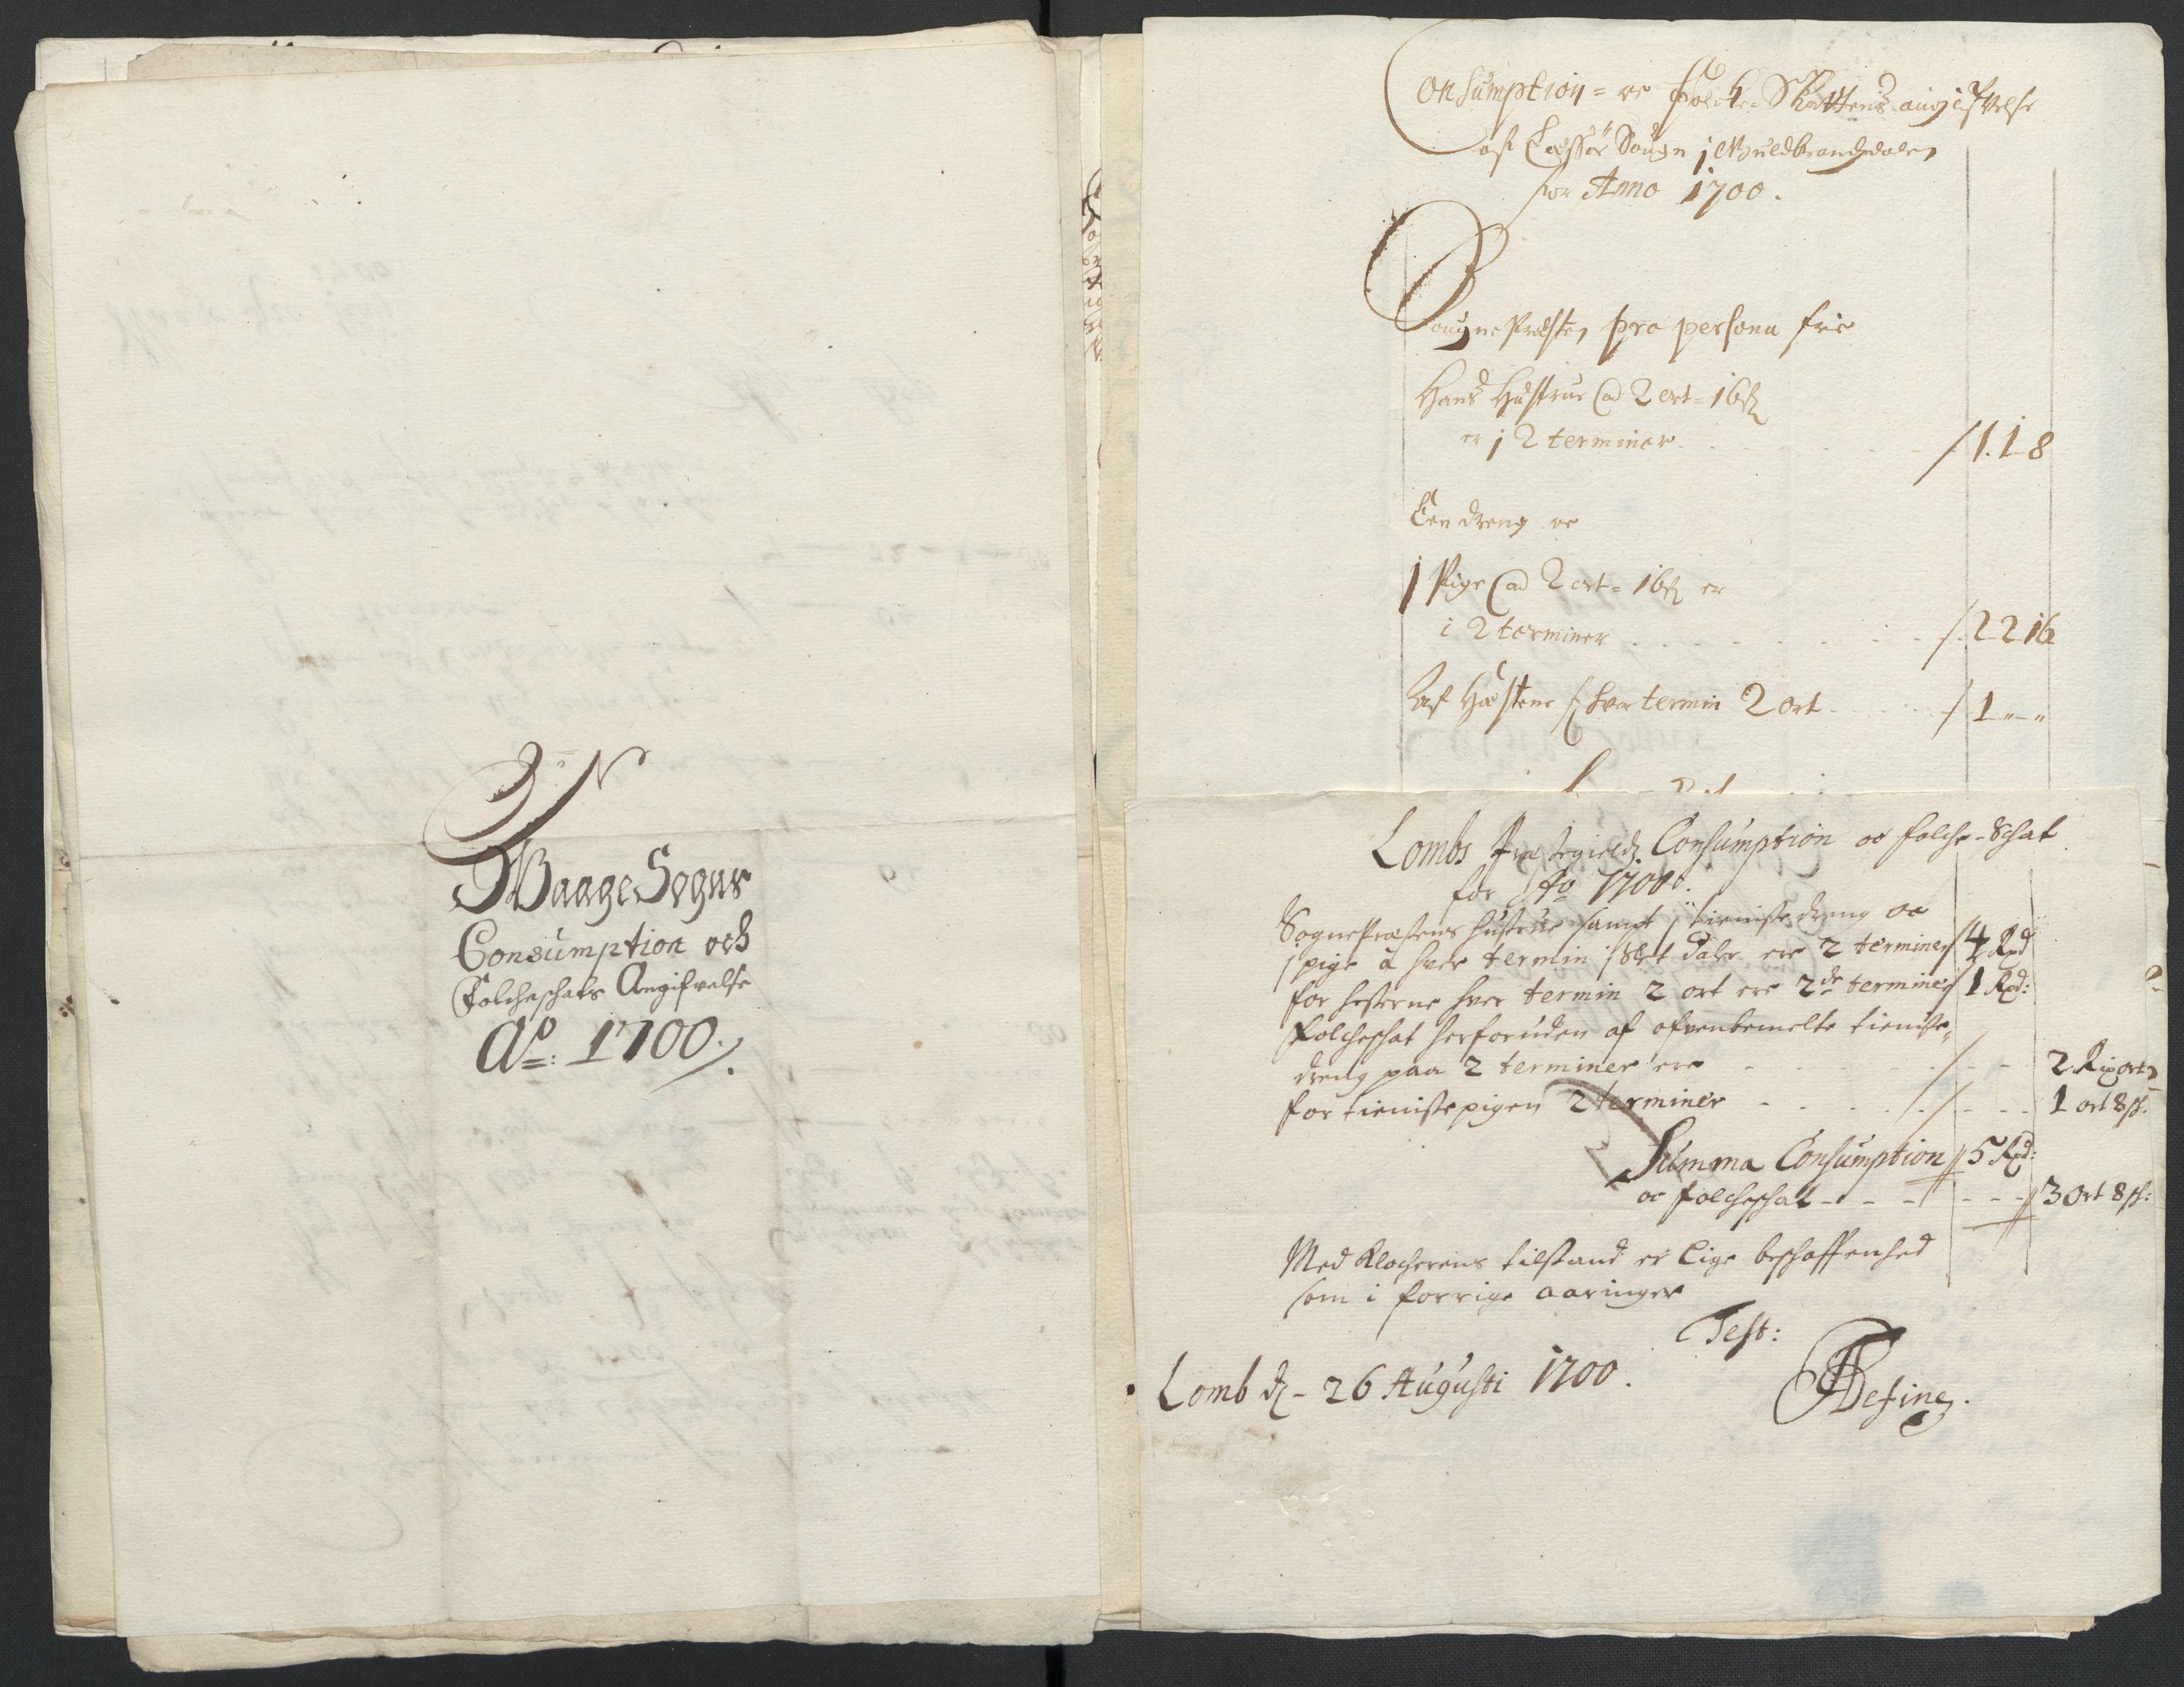 Waage Sogns
Consumption och
Folcheschats Angifvelse
Ao: 1700.
Consumption- oc Folche-Skattens angifvelse
af Lessøe Sougn j Guldbrandsdalen
for Anno 1700.
Sougne Præsten, pro persona frie
Hans Hustrue (a 2 ort- 16 ß
er j 2 terminer 1. 1- 8
Een dreng oc
1 Pige (a 2 ort- 16 ß er
i 2 terminer 2 2 16
Af Hæstene hver termin 2 ort 1 - " - "
Lombs Præstegields Consumption oc folche-Schat
for Ao 1700.
SognePræstens hustrue sampt j tieniste dreng oc
j pige à hver termin j Slet daler ere 2 terminer 4 Rxd
for hesterne hver termin 2 ort ere 2de terminer 1 Rxd:
folcheschat herforuden af ofvenbemelte tieniste-
dreng paa 2 terminer ere 2 Rixort
for tienistepigen 2 terminer 1 ort 8 sk.
Summa Consumption 5 Rxd:
oc folcheschat 3 ort 8 sk:
Med Klocherens tilstand er lige beschaffenhed
som i forrige aaringer
Test:
Lomb d. 26 Augusti 1700.